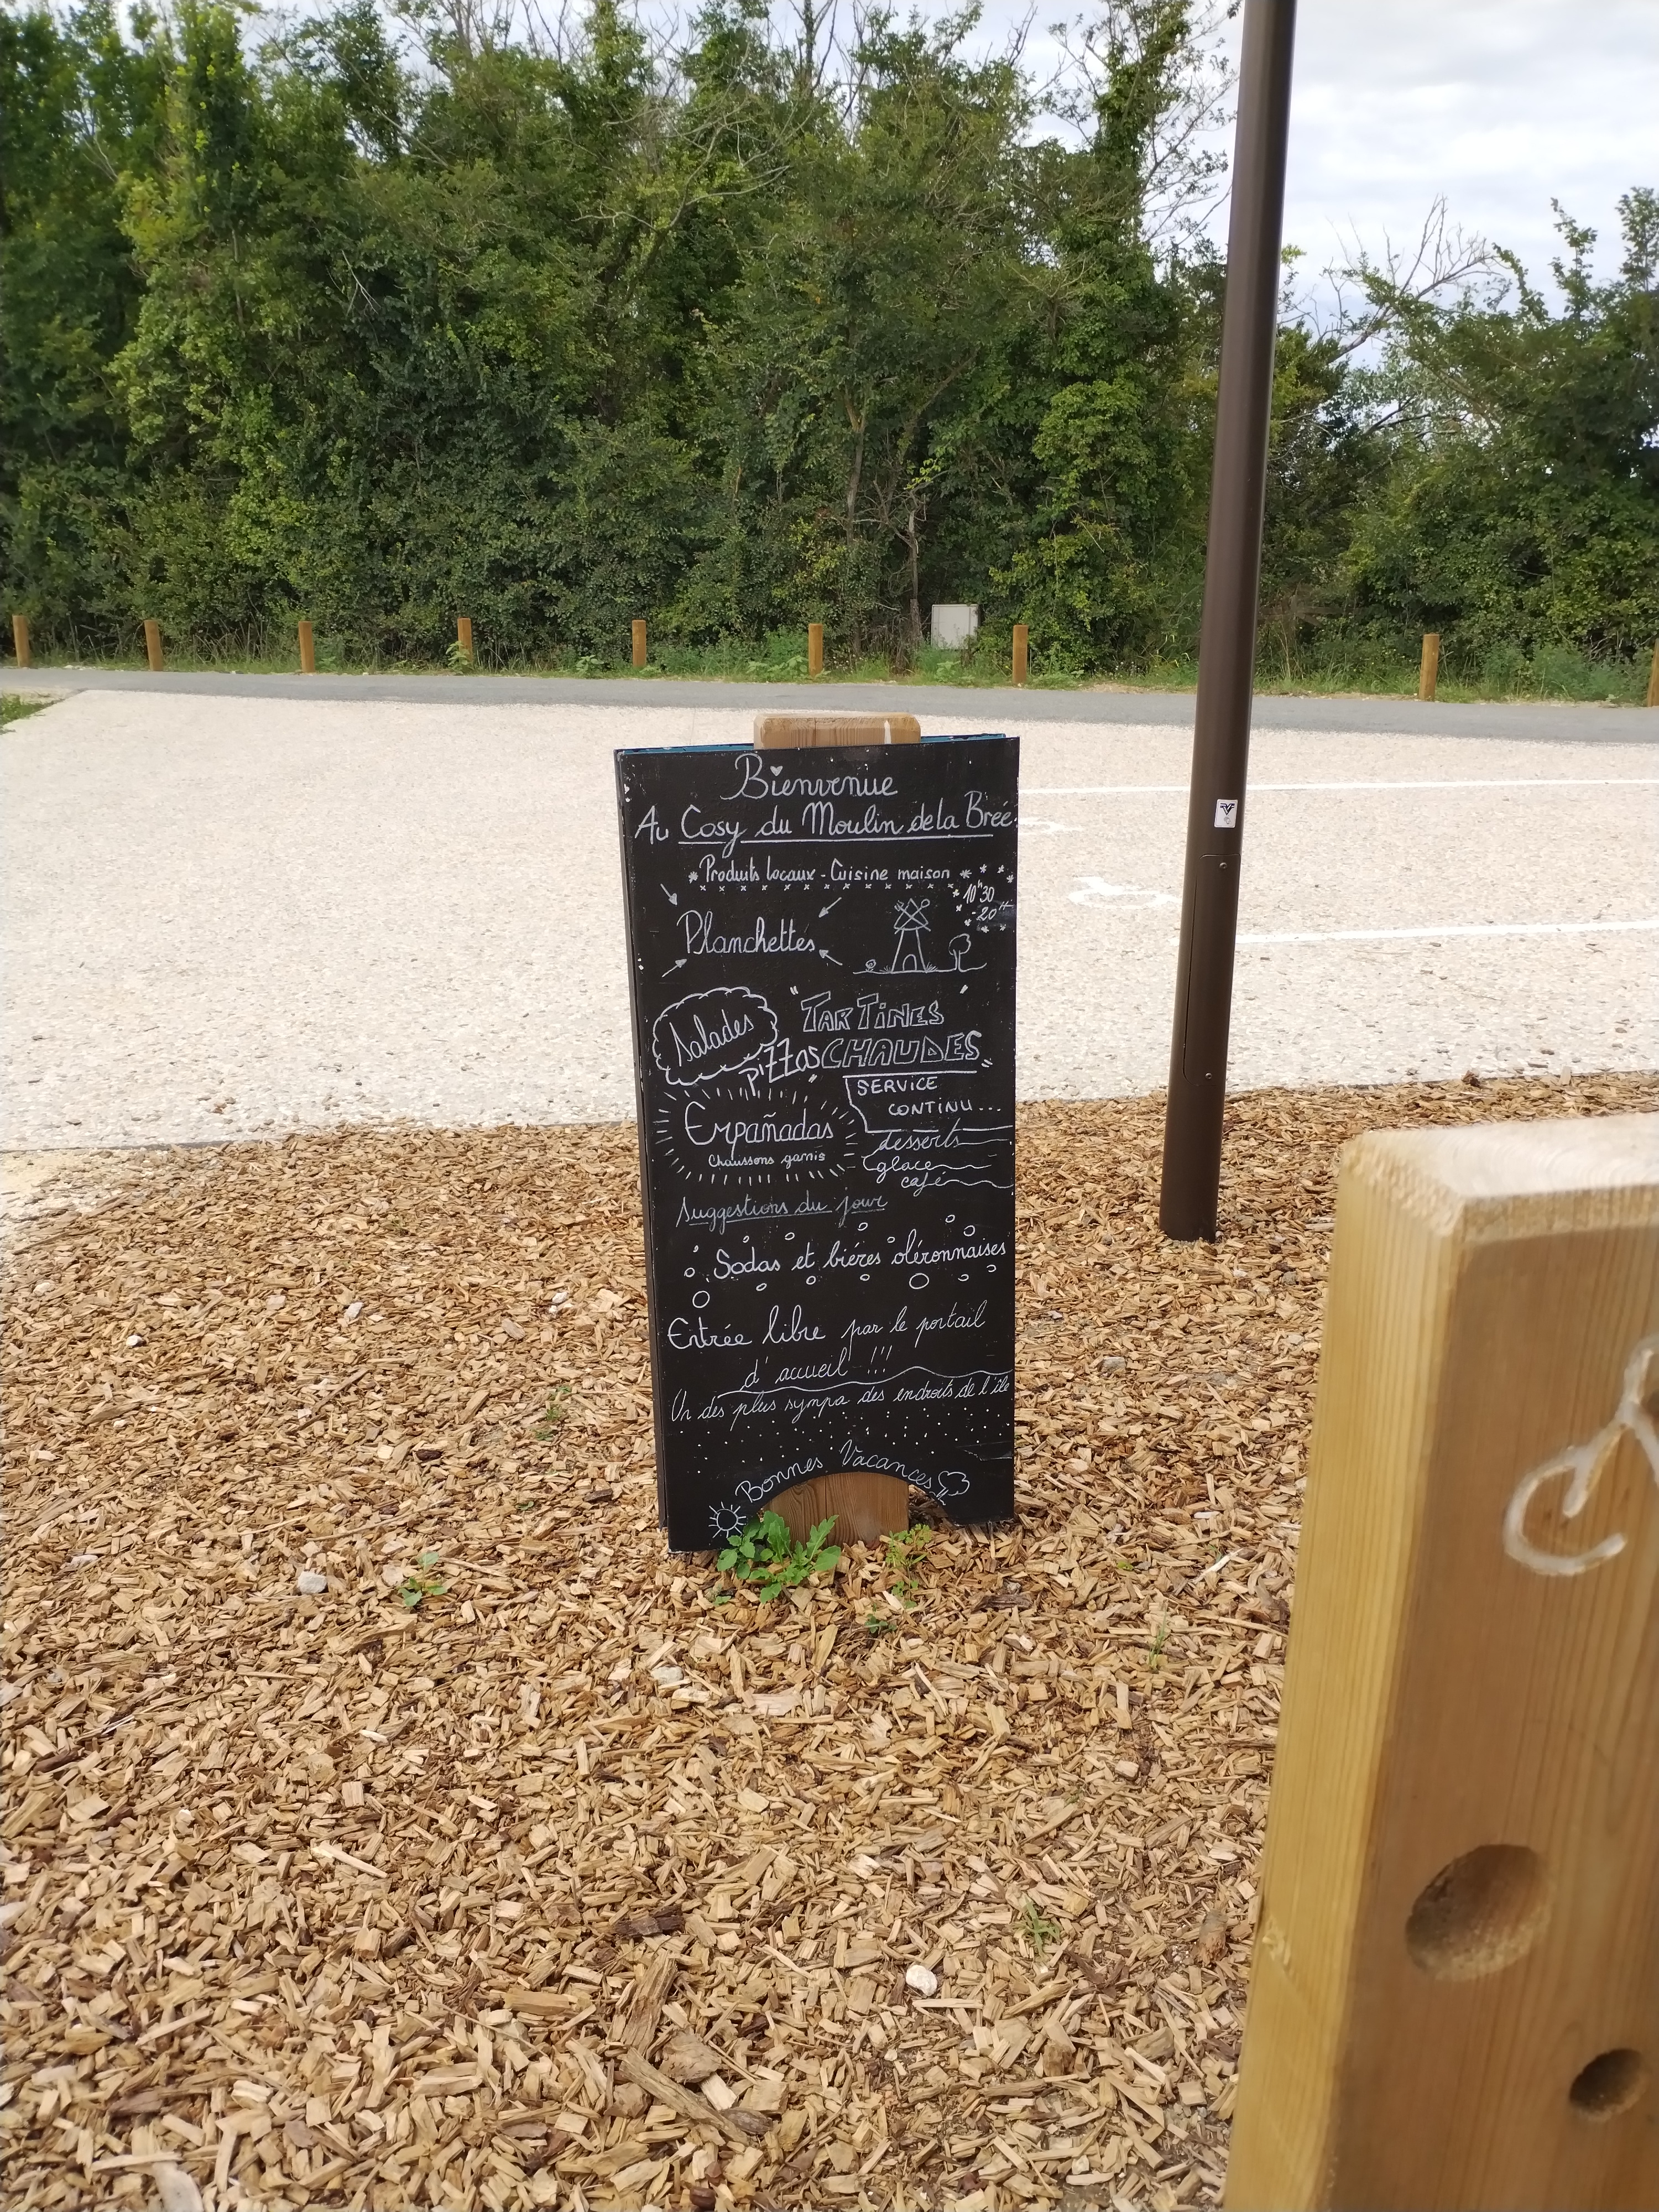 Bienvenue
Au Cosy du Moulin de la Brée
Produits locaux - Cuisine maison
10h30
-20H
Planchettes
Salades
"TARTINES
CHAUDES"
Pizzas
SERVICE
CONTINU...
Empañadas
Chaussons garnis
desserts
glace
café
Suggestions du jour
Sodas et bières oléronnaises
Entrée libre par le portail
d'accueil !!!
Un des plus sympa des endroits de l'île
Bonnes Vacances